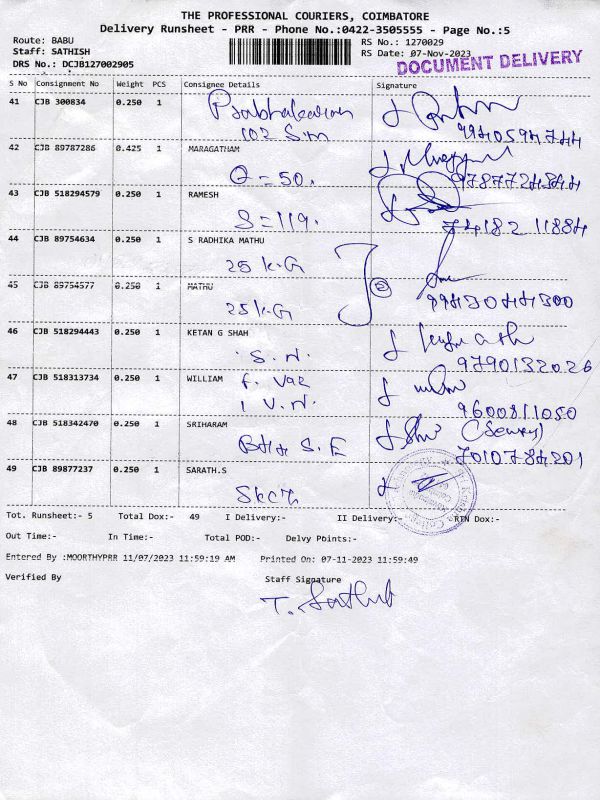 THE PROFESSIONAL COURIERS, COIMBATORE
Delivery Runsheet - PRR - Phone No.:0422-3505555 - Page No.:5
Route: BABU RS No.: 1270029
Staff: SATHISH RS Date: 07-Nov-2023
DRS No.: DCJB127002905 DOCUMENT DELIVERY
S No Consignment No Weight PCS Consignee Details Signature
41 CJB 300834 0.250 1 Prabhakaran
102 S.M
9940594744
42 CJB 89787286 0.425 1 MARAGATHAM
Q = 50.
9787724844
43 CJB 518294579 0.250 1 RAMESH
S = 119.
74182 11884
44 CJB 89754634 0.250 1 S RADHIKA MATHU
25 K.G
45 CJB 89754577 0.250 1 MATHU
25 K.G
9943044300
46 CJB 518294443 0.250 1 KETAN G SHAH
S. N.
9790132026
47 CJB 518313734 0.250 1 WILLIAM
1 V.N.
9600811050
48 CJB 518342470 0.250 1 SRIHARAM
S. E
7010784201
49 CJB 89877237 0.250 1 SARATH.S
Tot. Runsheet:- 5 Total Dox:- 49 I Delivery:- II Delivery:- RTN Dox:-
Out Time:- In Time:- Total POD:- Delvy Points:-
Entered By :MOORTHYPRR 11/07/2023 11:59:19 AM Printed On: 07-11-2023 11:59:49
Verified By Staff Signature
T. Sathish